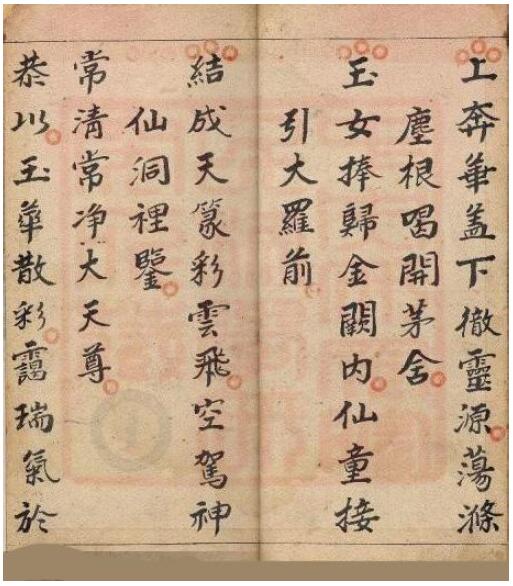 上奔華盖下徹靈源蕩滌
塵根喝開茅舍
玉女捧歸金闕内仙童接
引大羅前
結成天篆彩雲飛空駕神
仙洞裡鑒
常清常净大天尊
恭以玉華散彩靄瑞氣於